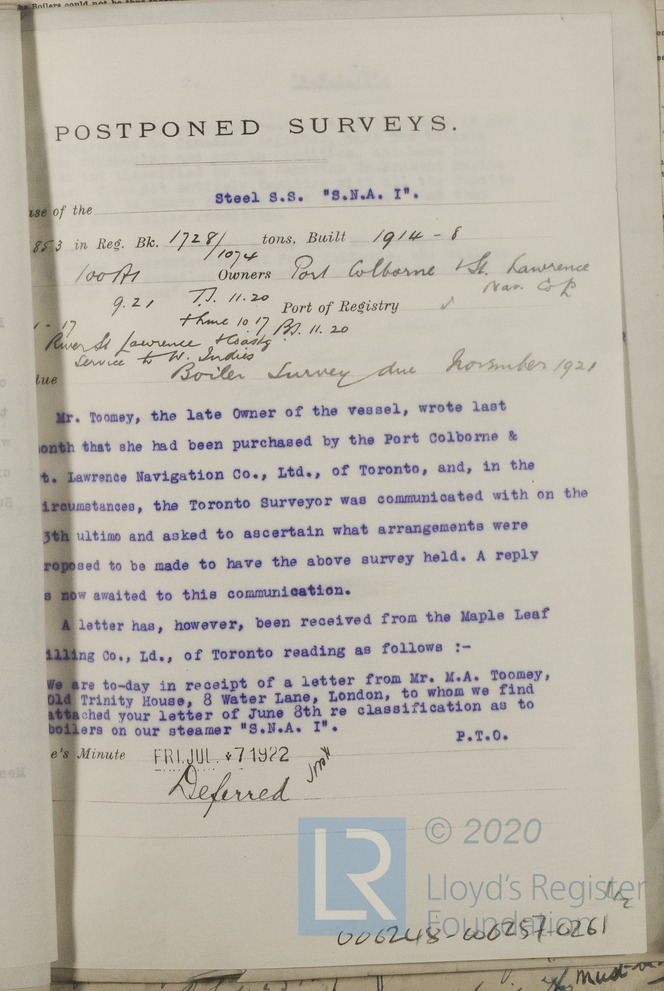 he Boilers could not be
POSTPONED SURVEYS.
ase of the Steel S.S. "S.N.A. I".
853 in Reg. Bk. 1728/1074 tons, Built 1914-8
100A1 Owners Port Colborne & St. Lawrence
Nav. Co
9.21 T.S. 11.20 Port of Registry
1-17 10 17 BS. 11.20
River St Lawrence & Coastg
Service to W. Indies
due Boiler Survey due November 1921
Mr. Toomey, the late Owner of the vessel, wrote last
onth that she had been purchased by the Port Colborne &
t. Lawrence Navigation Co., Ltd., of Toronto, and, in the
ircumstances, the Toronto Surveyor was communicated with on the
3th ultimo and asked to ascertain what arrangements were
roposed to be made to have the above survey held. A reply
s now awaited to this communication.
A letter has, however, been received from the Maple Leaf
illing Co., Ld., of Toronto reading as follows :-
We are to-day in receipt of a letter from Mr. M.A. Toomey,
Old Trinity House, 8 Water Lane, London, to whom we find
attached your letter of June 8th re classification as to
boilers on our steamer "S.N.A. I".
P.T.O.
e's Minute FRI. JUL. 7 1922
Deferred
© 2020
LR
Lloyd's Register
Foundation
006248-006257-0261
must